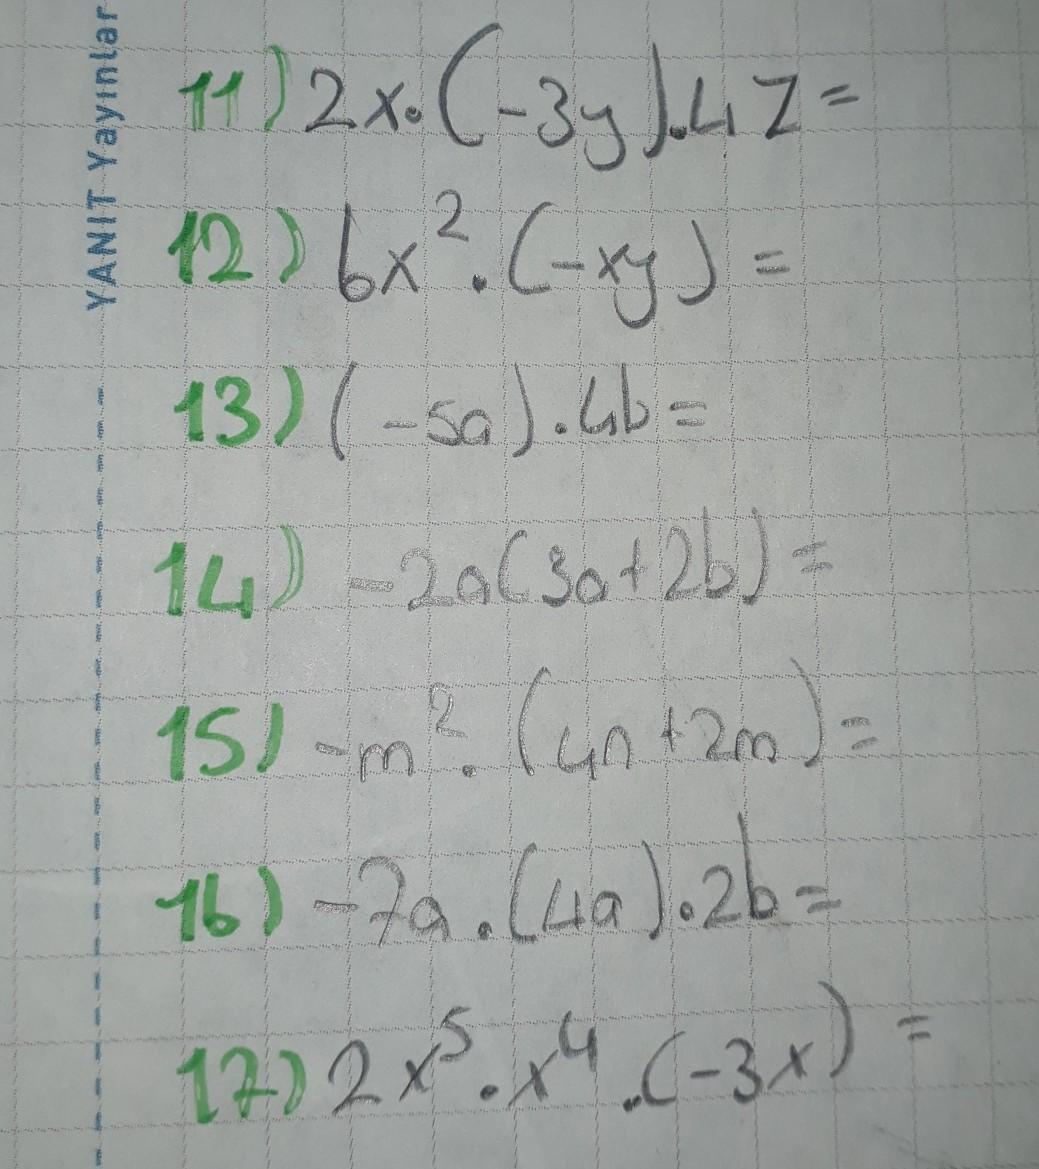 YANIT Yayınlar
11) 2x.(-3y).4z=
12) 6x².(-xy)=
13) (-5a).4b=
14) -2a(3a+2b)=
15) -m².(4n+2m)=
16) -7a.(4a).2b=
17) 2x⁵.x⁴.(-3x)=